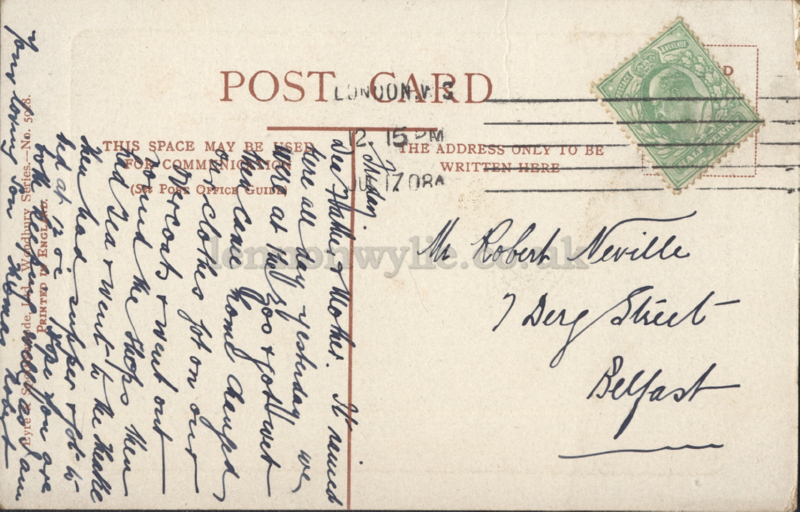 POST CARD
THIS SPACE MAY BE USED
FOR COMMUNICATION
(See Post Office Guide)
THE ADDRESS ONLY TO BE
WRITTEN HERE
LONDON.W.S
12.15PM
JUL 17 08A
Mr Robert Neville
7 Derg Street
Belfast
Friday.
Dear Father & Mother. It rained
here all day yesterday we
were at the Zoo & got wet
then came home changed
our clothes got on our
overcoats & went out
round the shops then
had tea & went to the theatre
then had supper & got to
bed at 12 oc. Hope you are
both keeping well as I am
Your loving son Robert
Woodbury Series.—No. 5928.
Printed in England.
lennonwylie.co.uk